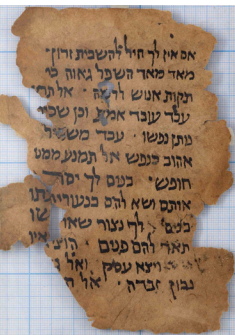 אם אין לך חיל להשבית זדון ·
מאד מאד השפל גאוה כי
תקות אנוש לרמה · אל
עבד עובד אמת וכן שכיר
נותן נפשו · עבד משכיל
אהוב כנפש אל תמנע ממנו
חופש · בנים לך
אותם ושא להם
לך נצור
תאר להם פנים ·
ויצא עסק · ואל
נבון · אל